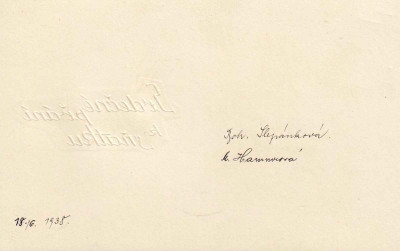 Srdečné
přání
k sňatku
Boh. Štěpánková.
M. Hamurová
18./6. 1938.